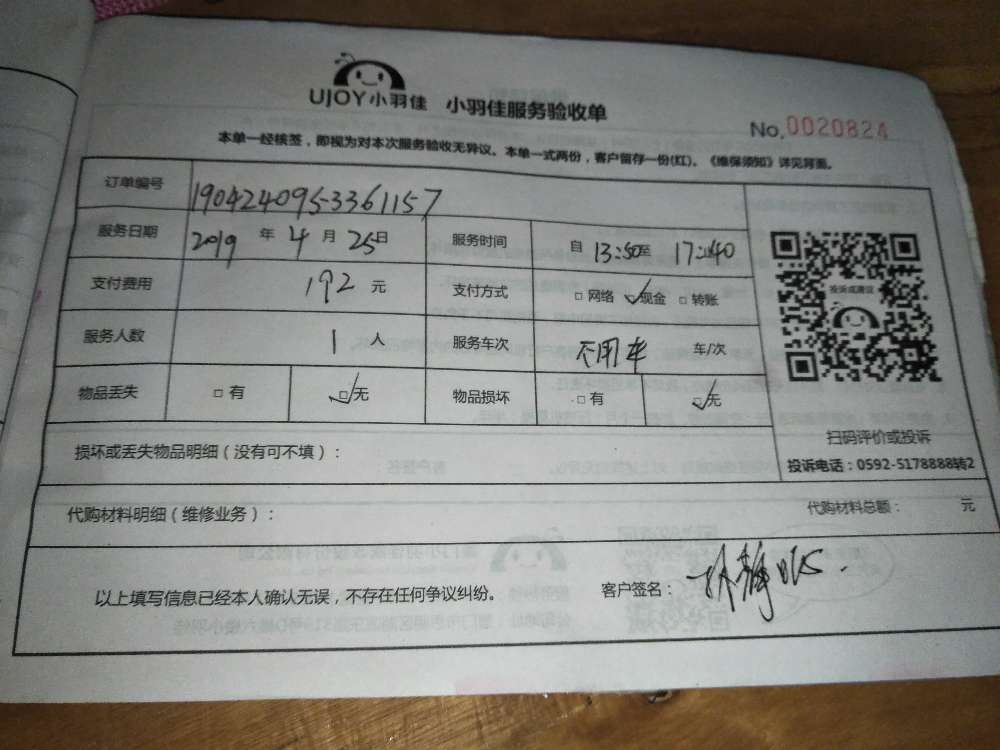 UJOY小羽佳 小羽佳服务验收单
No.0020824
本单一经核签，即视为对本次服务验收无异议。本单一式两份，客户留存一份(红)。《维保须知》详见背面。
订单编号 1904240953361157
服务日期 2019 年 4 月 25日 服务时间 自 13:50至 17:40
支付费用 192 元 支付方式 □网络 ☑现金 □转账
服务人数 1 人 服务车次 不用车 车/次
物品丢失 □有 ☑无 物品损坏 □有 ☑无
投诉或建议
扫码评价或投诉
投诉电话：0592-5178888转2
损坏或丢失物品明细（没有可不填）：
代购材料明细（维修业务）： 代购材料总额： 元
以上填写信息已经本人确认无误，不存在任何争议纠纷。 客户签名：